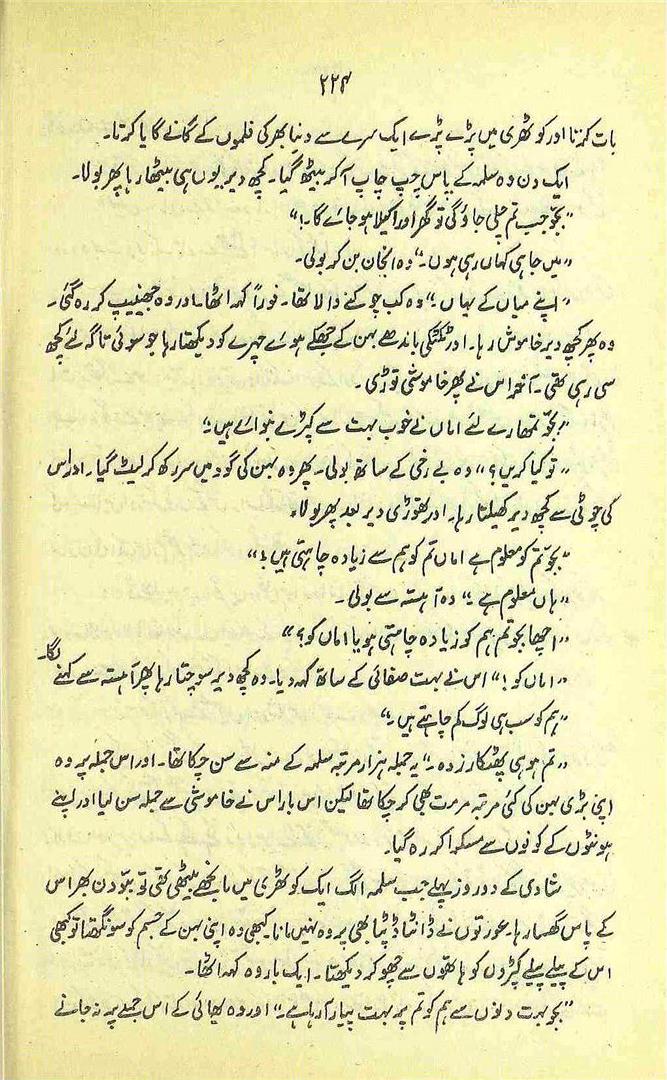 ۲۲۴
بات کرتا اور کوٹھری میں پڑے پڑے ایک سرے سے دنیا بھر کی فلموں کے گانے گایا کرتا۔
ایک دن وہ سلمہ کے پاس چپ چاپ آکر بیٹھ گیا۔ کچھ دیر یوں ہی بیٹھا رہا پھر بولا۔
"بجّو جب تم چلی جاؤ گی تو گھر اور اکیلا ہو جائے گا۔!"
"میں جا ہی کہاں رہی ہوں۔" وہ انجان بن کر بولی۔
"اپنے میاں کے یہاں" وہ کب چوکنے والا تھا۔ فوراً کہہ اٹھا۔ اور وہ جھنیپ کر رہ گئی۔
وہ پھر کچھ دیر خاموش رہا۔ اور ٹکٹکی باندھے بہن کے جھکے ہوئے چہرے کو دیکھتا رہا جو سوئی تاگہ لئے کچھ
سی رہی تھی۔ آخر اس نے پھر خاموشی توڑی۔
"بجّو تمھارے لئے اماں نے خوب بہت سے کپڑے بنوائے ہیں"
"تو کیا کریں؟" وہ بے رخی کے ساتھ بولی۔ پھر وہ بہن کی گود میں سر رکھ کر لیٹ گیا۔ اور اس
کی چوٹی سے کچھ دیر کھیلتا رہا۔ اور تھوڑی دیر بعد پھر بولا۔
"بجّو تم کو معلوم ہے اماں تم کو ہم سے زیادہ چاہتی ہیں!"
"ہاں معلوم ہے" وہ آہستہ سے بولی۔
"اچھا بجو تم ہم کو زیادہ چاہتی ہو یا اماں کو؟"
"اماں کو!" اس نے بہت صفائی کے ساتھ کہہ دیا۔ وہ کچھ دیر سوچتا رہا پھر آہستہ سے کہنے لگا۔
"ہم کو سب ہی لوگ کم چاہتے ہیں۔"
"تم ہو ہی پھٹکار زدہ۔" یہ جملہ ہزار مرتبہ سلمہ کے منہ سے سن چکا تھا۔ اور اس جملہ پر وہ
اپنی بڑی بہن کی کئی مرتبہ مرمت بھی کر چکا تھا لیکن اس بار اس نے خاموشی سے جملہ سن لیا اور اپنے
ہونٹوں کے کونوں سے مسکرا کر رہ گیا۔
شادی کے دو روز پہلے جب سلمہ الگ ایک کوٹھری میں مانجھے بیٹھی تھی تو ببّو دن بھر اس
کے پاس گھسا رہا۔ عورتوں نے ڈانٹا ڈپٹا بھی پر وہ نہیں مانا کبھی وہ اپنی بہن کے جسم کو سونگھتا تو کبھی
اس کے پیلے پیلے کپڑوں کو ہاتھوں سے چھو کر دیکھتا۔ ایک بار وہ کہہ اٹھا۔
"بجو بہت دنوں سے ہم کو تم پر بہت پیار آرہا ہے۔" اور وہ بھائی کے اس جملے پر نہ جانے